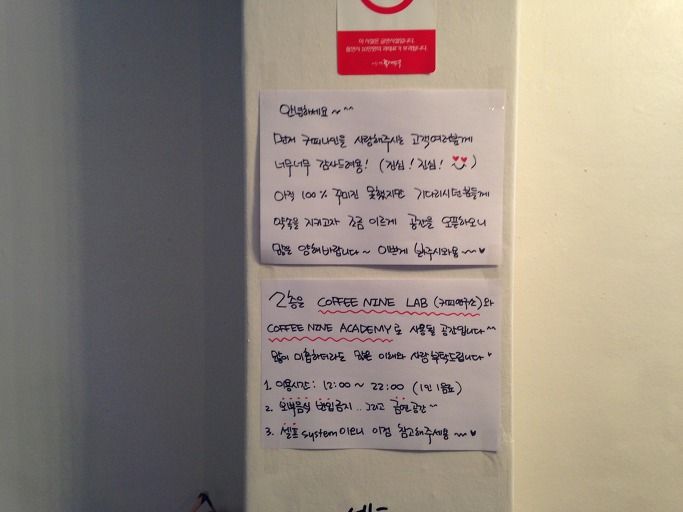 이 시설은 금연시설입니다.
안녕하세요~^^
먼저 커피나인을 사랑해주시는 고객여러분께
너무너무 감사드려용! (진심! 진심! )
아직 100% 꾸미진 못했지만 기다리시던 분들께
약속을 지키고자 조금 이르게 공간을 오픈하오니
많은 양해바랍니다~ 이쁘게 봐주시와용 ~~♥
2층은 COFFEE NINE LAB (커피연구소)와
COFFEE NINE ACADEMY로 사용될 공간입니다^^
많이 미흡하더라도 많은 이해와 사랑 부탁드립니다♥
1. 이용시간: 12:00 ~ 22:00 (1인 1음료)
2. 외부음식 반입금지.. 그리고 금연공간^^
3. 셀프system이오니 이점 참고해주세용 ~~♥